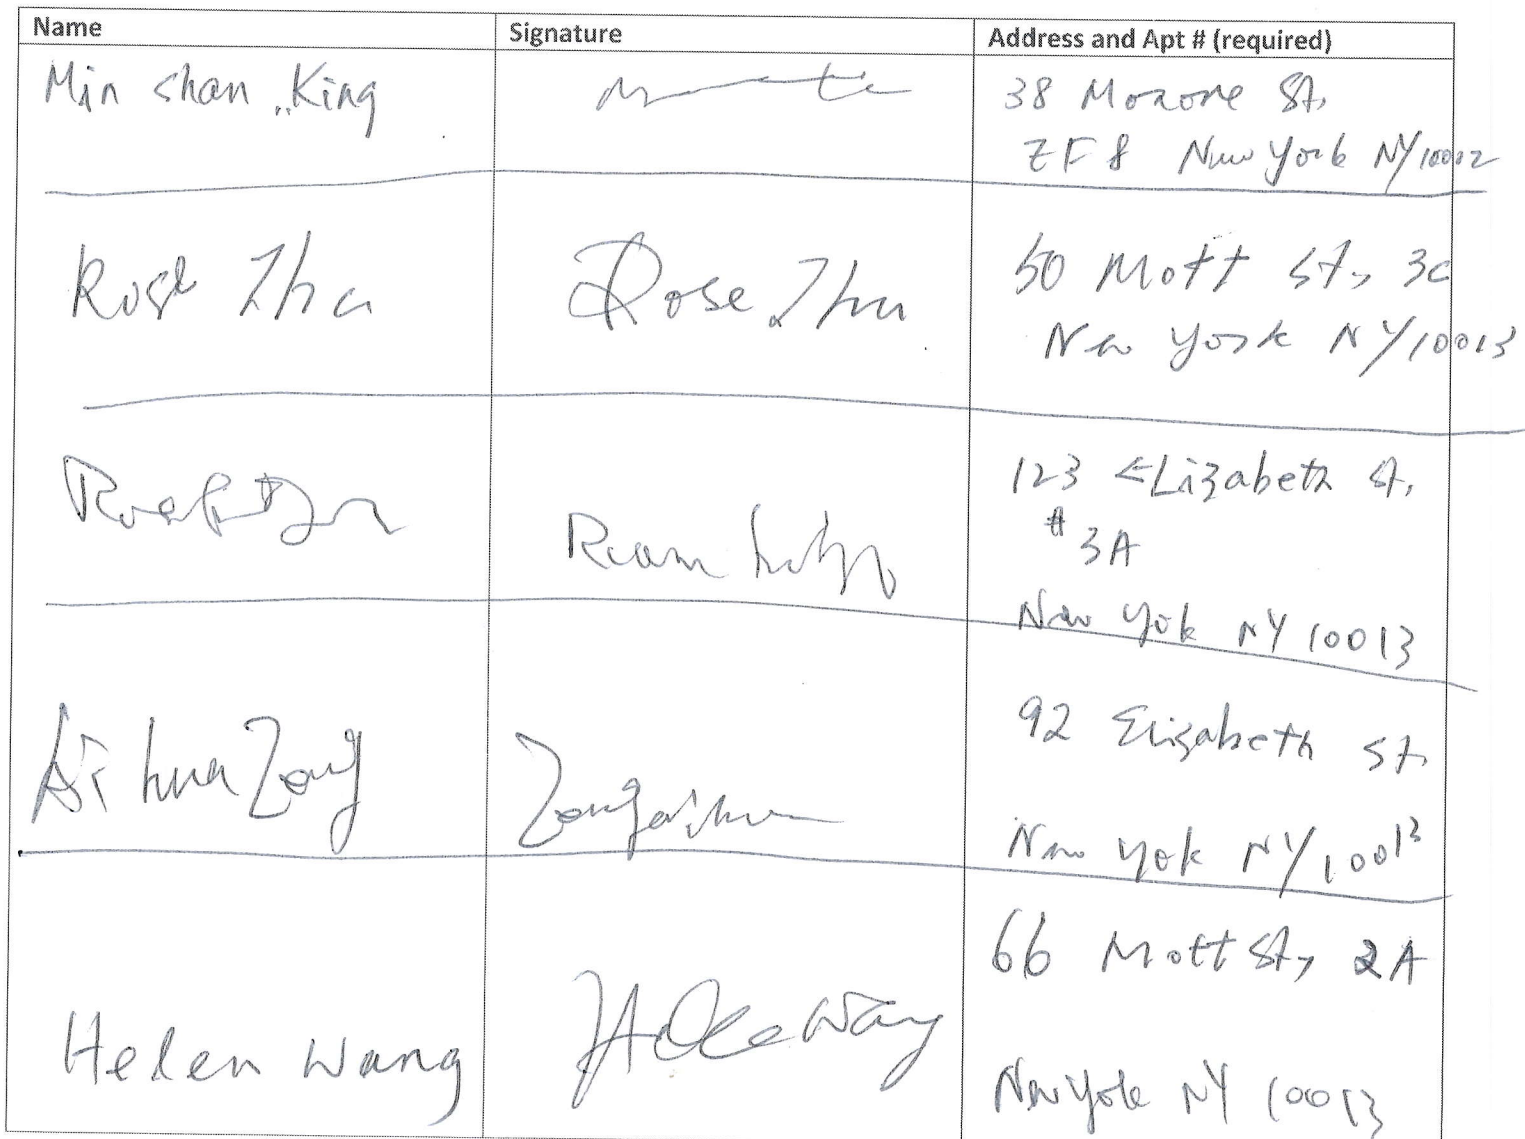 Name
Signature
Address and Apt # (required)
Min shan King
38 Monroe St,
New York NY 10002
Rose Zhu
Rose Zhu
50 Mott St, 3C
New York NY 10013
123 Elizabeth St,
# 3A
New York NY 10013
Ai hua Zong
Zong aihua
92 Elizabeth St.
New York NY 10013
Helen Wang
Helen Wang
66 Mott St, 2A
New York NY 10013